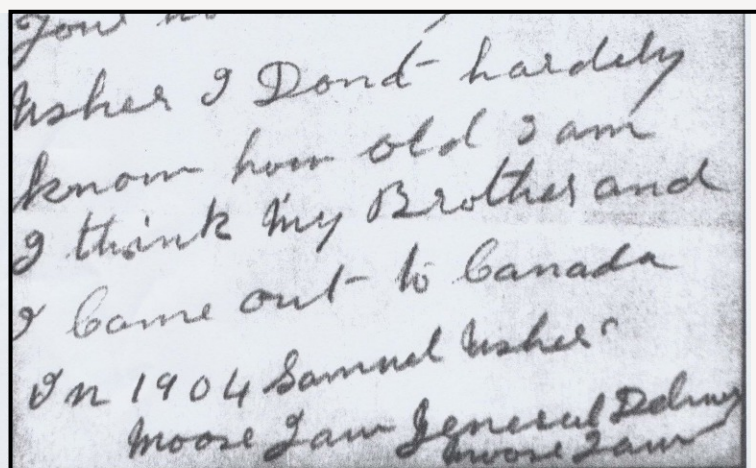 Usher I Dond hardely
know how old I am
I think My Brother and
I Came out to Canada
In 1904 Samuel Usher
Moose Jaw General
Moose Jaw